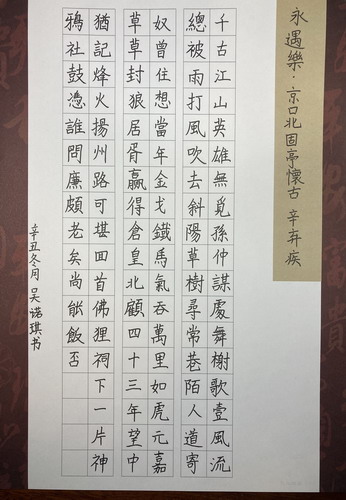 永遇樂·京口北固亭懷古 辛弃疾
千古江山英雄無覓孫仲謀處舞榭歌壹風流
總被雨打風吹去斜陽草樹尋常巷陌人道寄
奴曾住想當年金戈鐵馬氣吞萬里如虎元嘉
草草封狼居胥贏得倉皇北顧四十三年望中
猶記烽火揚州路可堪回首佛狸祠下一片神
鴉社鼓憑誰問廉頗老矣尚能飯否
辛丑冬月 吴诺琪书